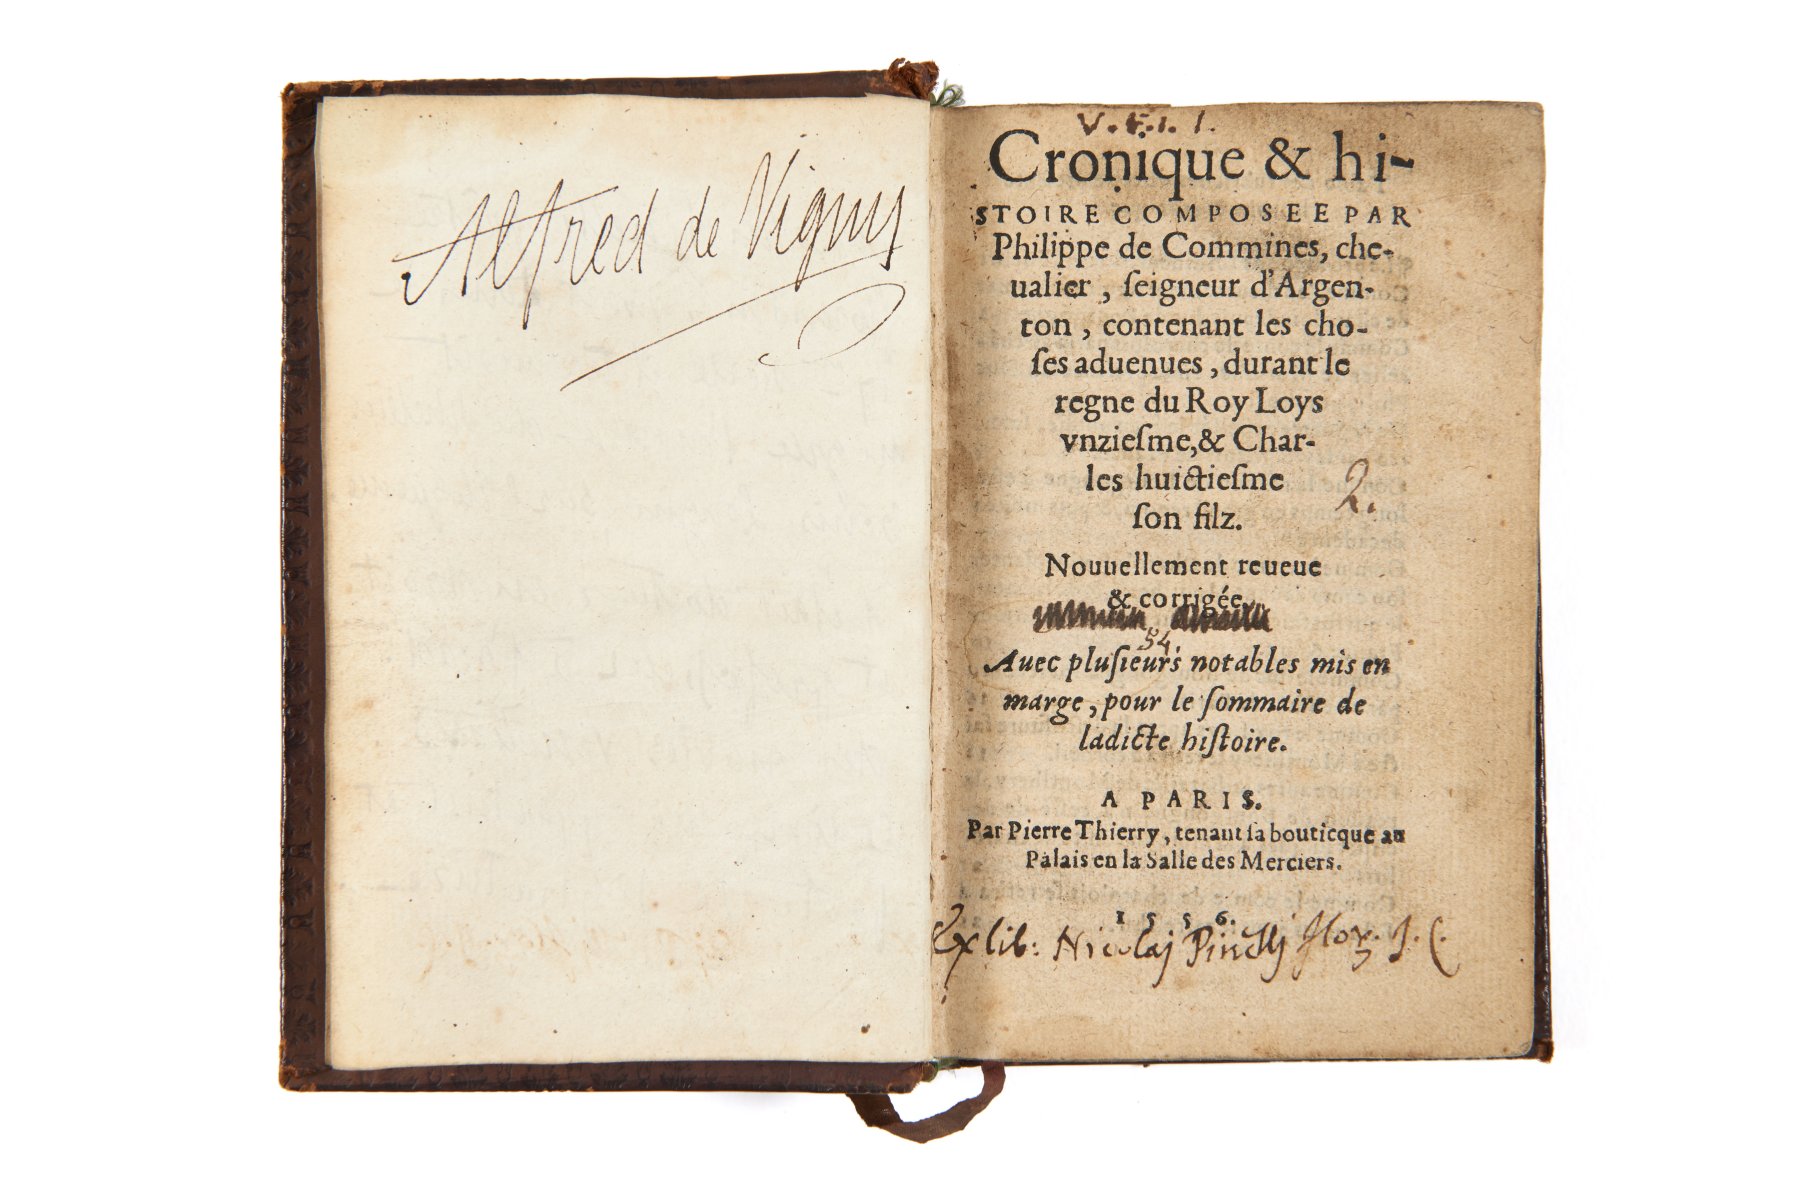 Alfred de Vigny
V. F. I. 1.
Cronique & hi-
STOIRE COMPOSEE PAR
Philippe de Commines, che-
ualier, ſeigneur d'Argen-
ton, contenant les cho-
ſes aduenues, durant le
regne du Roy Loys
vnzieſme, & Char-
les huictieſme
ſon filz.
2.
Nouuellement reueue
& corrigée.
54
Auec pluſieurs notables mis en
marge, pour le ſommaire de
ladicte hiſtoire.
A PARIS.
Par Pierre Thierry, tenant ſa bouticque au
Palais en la Salle des Merciers.
1556.
Ex lib: Nicolaj Pinellj flor. J. C.